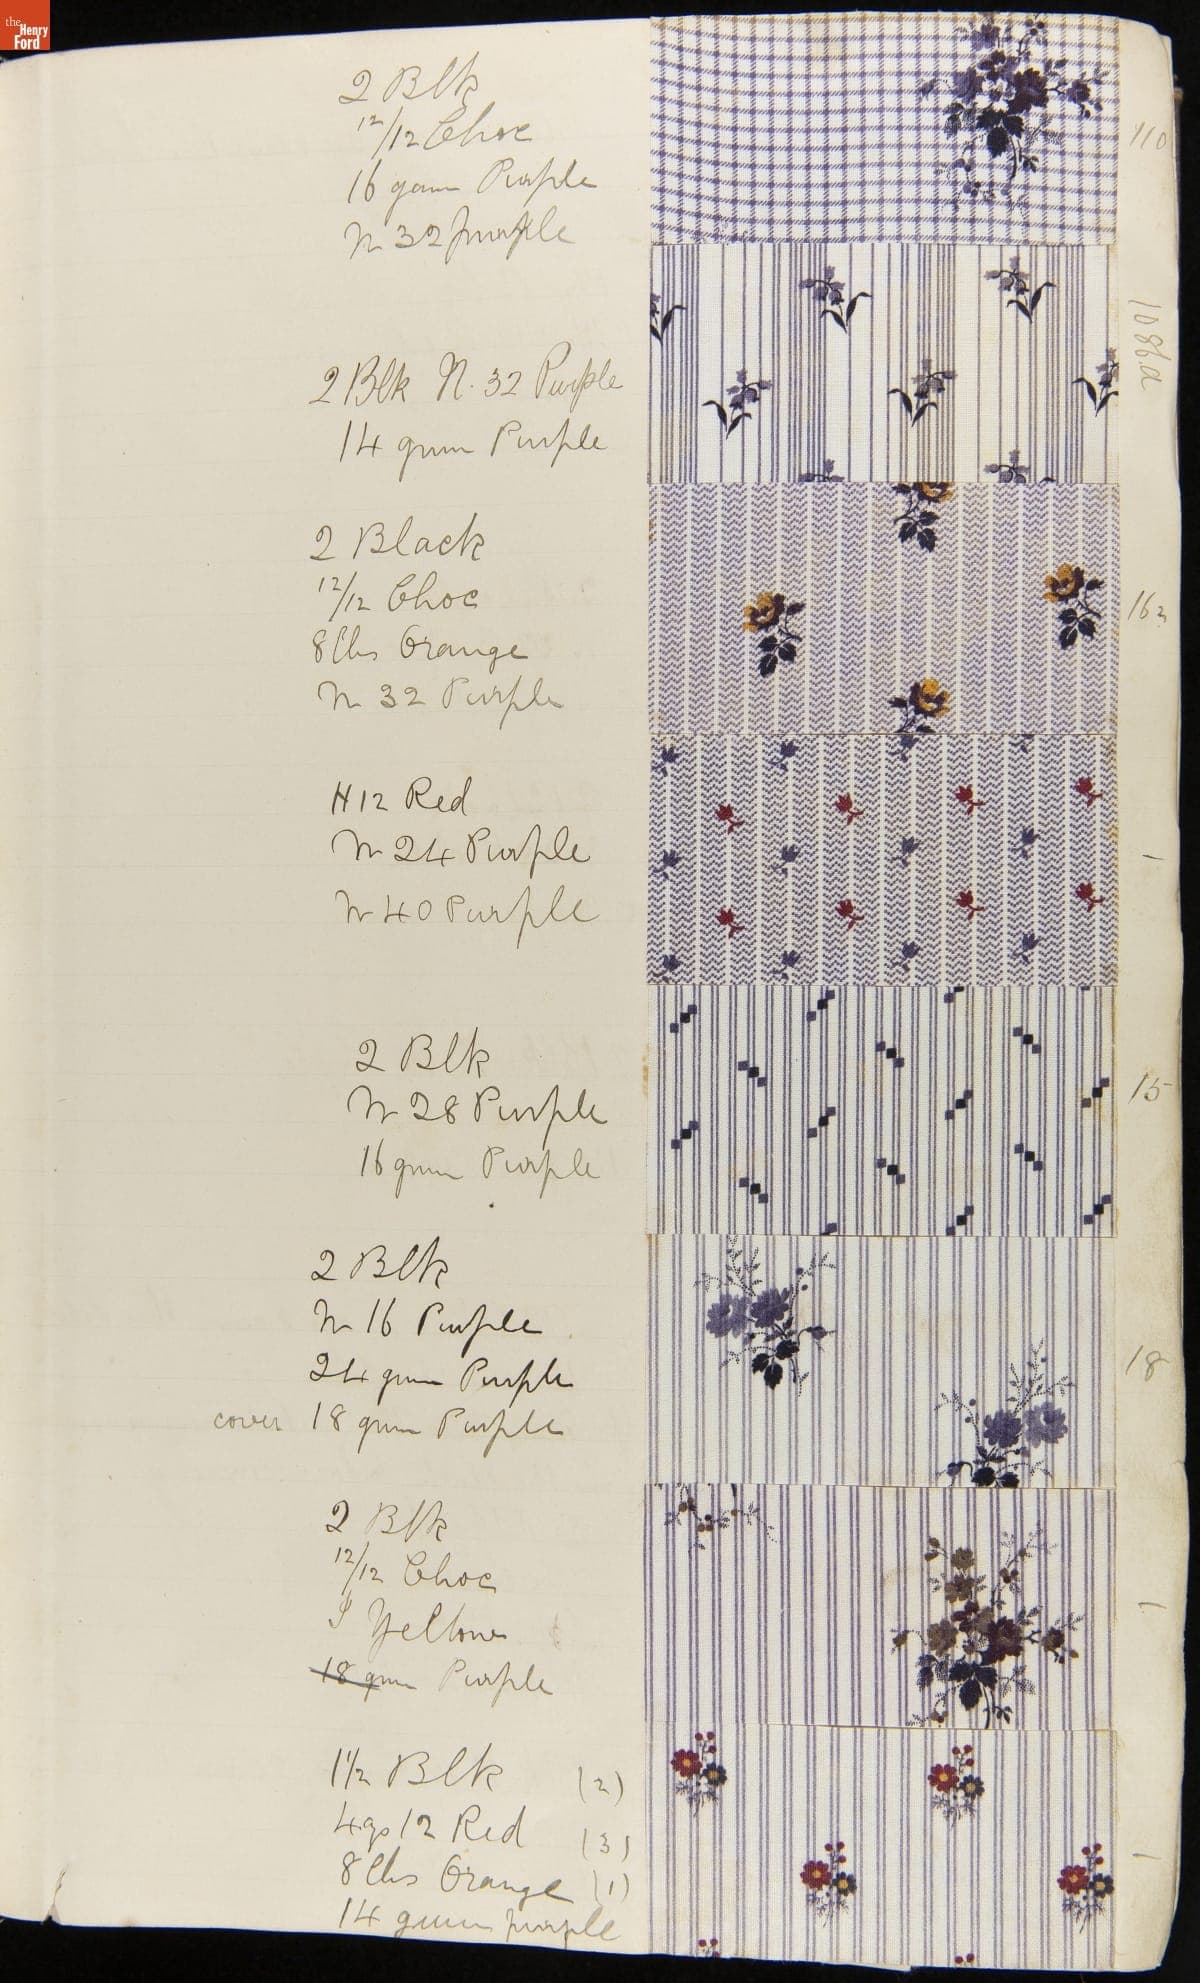 the Henry Ford
2 Blk
12/12 Choc
16 gum Purple
N 32 purple
110
2 Blk N. 32 Purple
14 gum Purple
1086.a
2 Black
12/12 Choc
8 lbs Orange
N 32 Purple
16
H 12 Red
N 24 Purple
N 40 Purple
2 Blk
N 28 Purple
16 gum Purple
15
2 Blk
N 16 Purple
24 gum Purple
cover 18 gum Purple
18
2 Blk
12/12 Choc
Yellow
18 gum Purple
1 1/2 Blk (2)
4 gs 12 Red (3)
8 lbs Orange (1)
14 gum purple